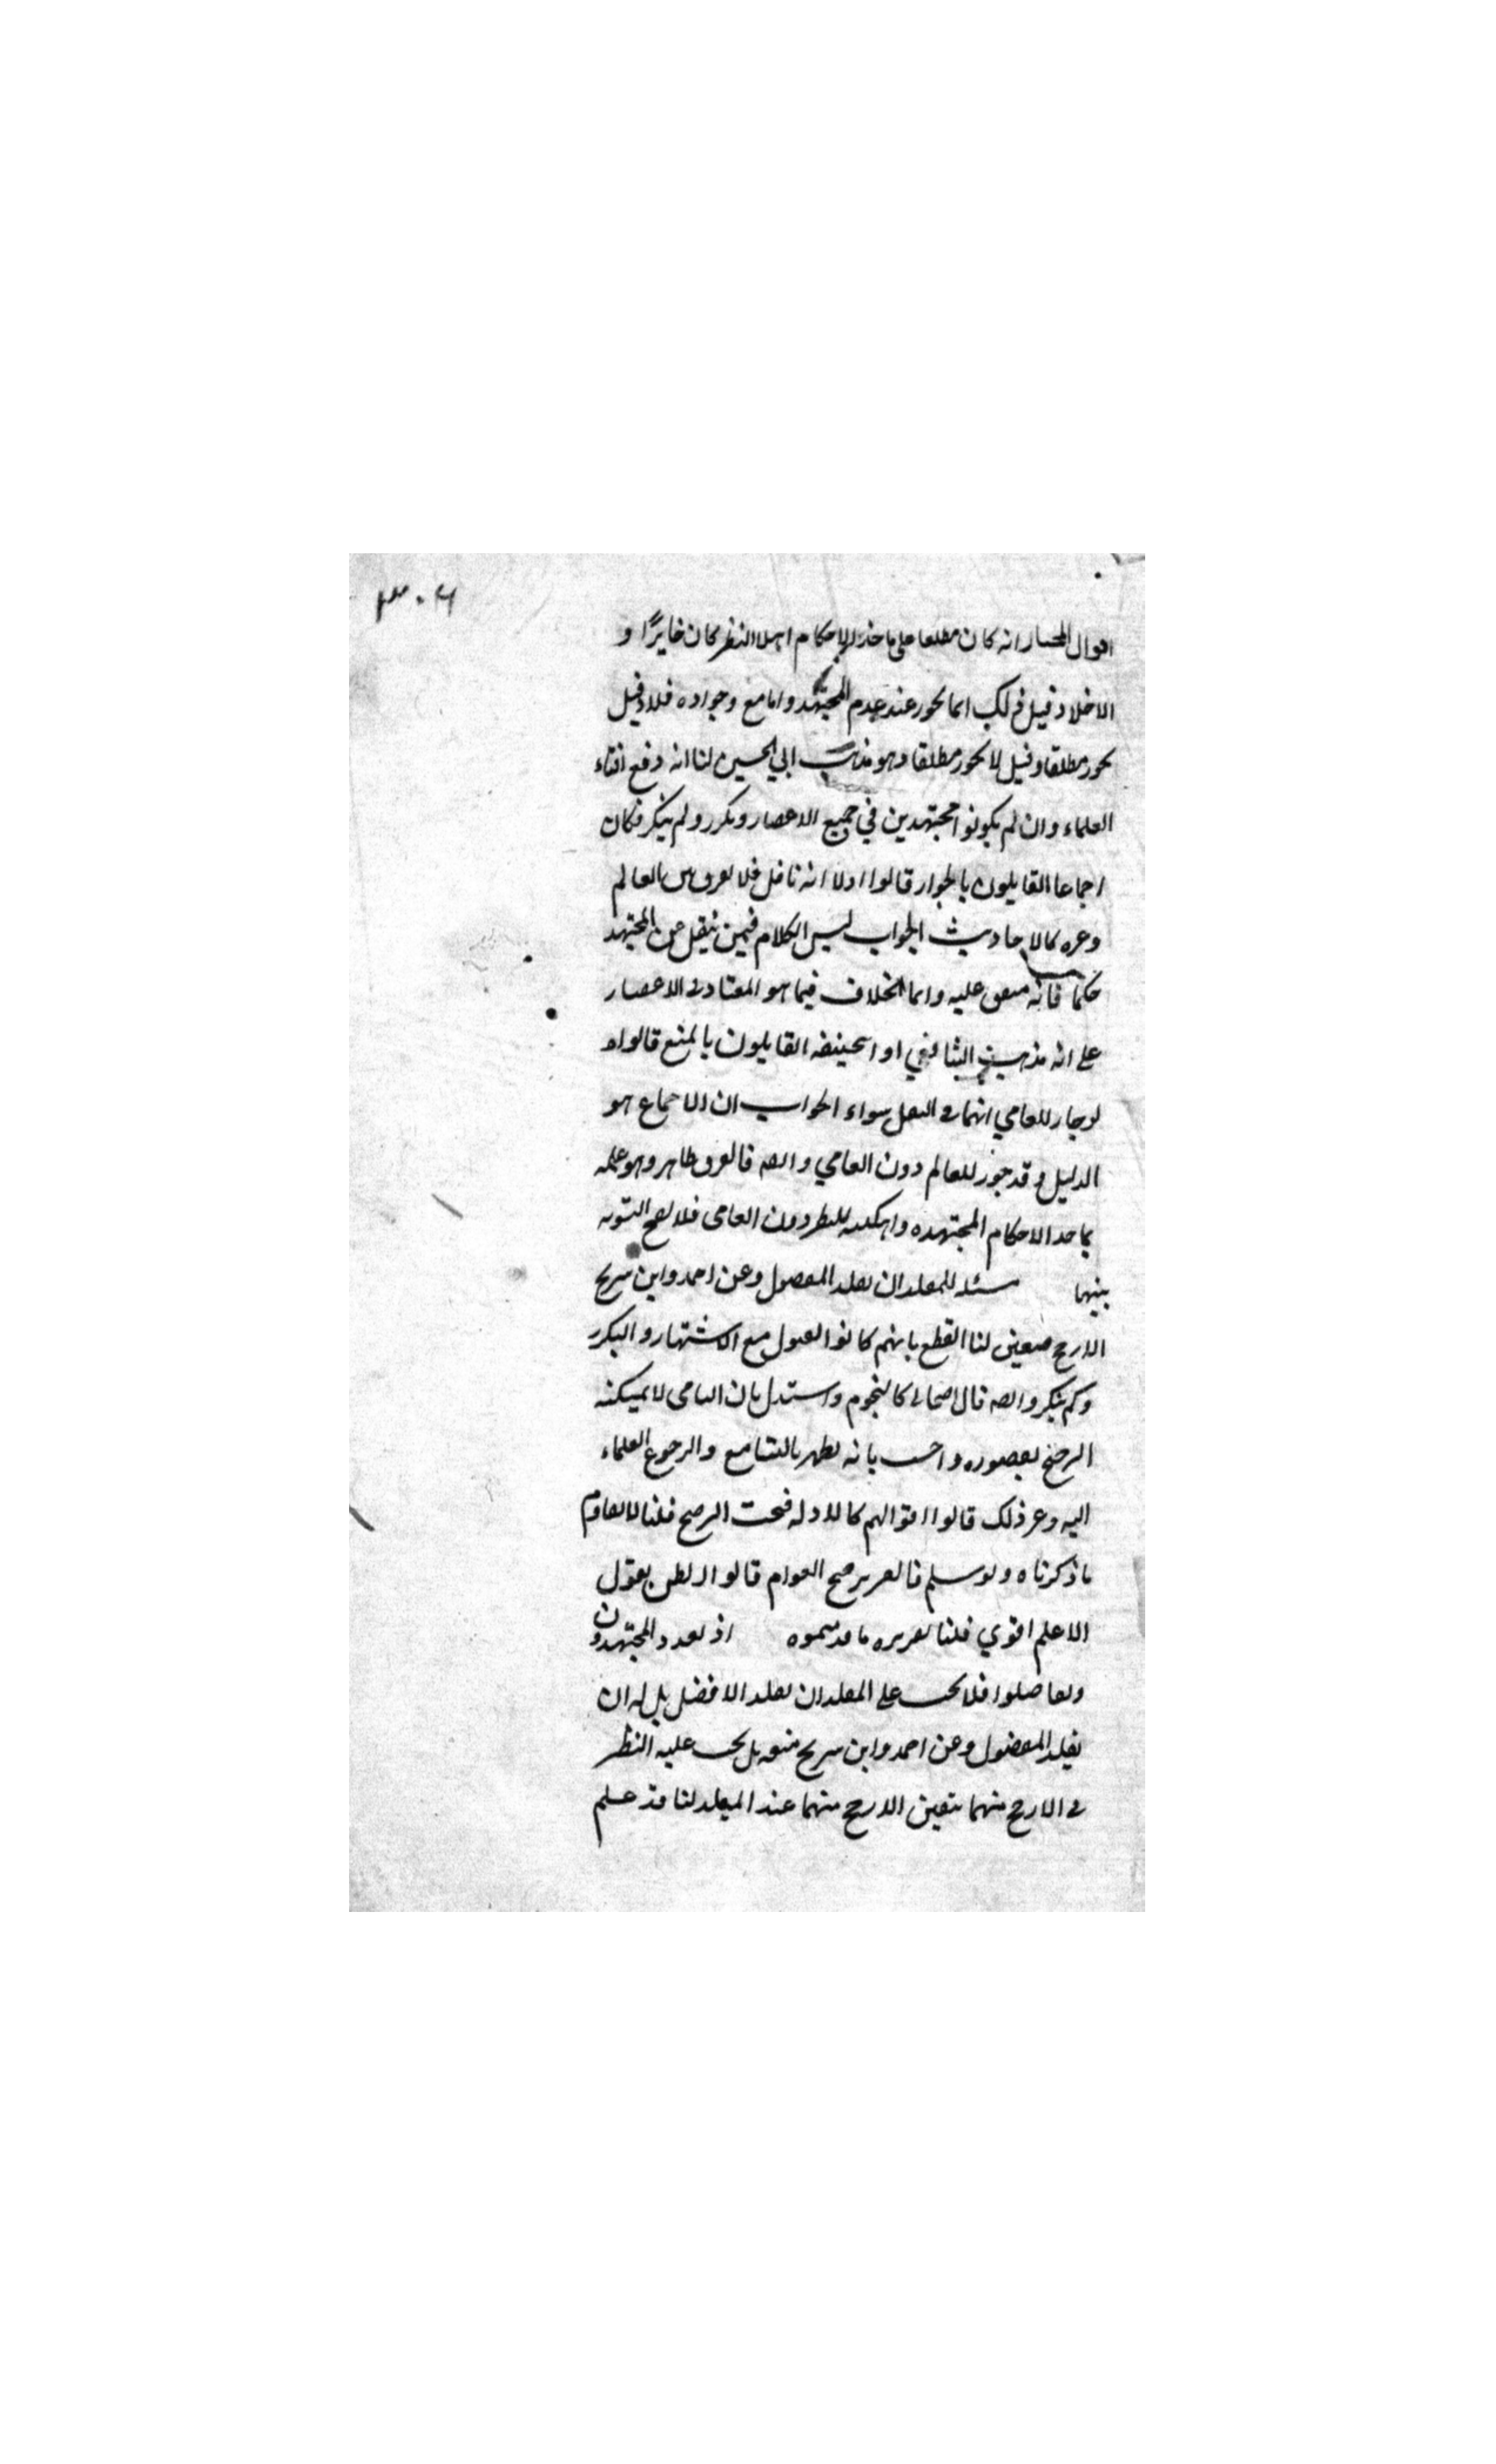 ٣٠٦
اقوال المختار انه كان مطلعا على ماخذ الاحكام اهلا للنظر كان جايزًا و
الا فلا وقيل في ذلك انما يجوز عند عدم المجتهد واما مع وجواده فلا وقيل
يجوز مطلقا وقيل لا يجوز مطلقا وهو مذهب ابي الحسين لنا انه وقع افتاء
العلماء وان لم يكونوا مجتهدين في جميع الاعصار وتكرر ولم ينكر فكان
اجماعا القايلون بالجواز قالوا اولا انه ناقل فلا فرق بين العالم
وغيره كالاحاديث الجواب ليس الكلام فيمن ينقل عن المجتهد
حكما فانه متفق عليه وانما الخلاف فيما هو المعتاد في الاعصار
على انه مذهب الشافعي او ابي حنيفة القايلون بالمنع قالوا
لو جاز للعامي انهما في النقل سواء الجواب ان الاجماع هو
الدليل وقد جوز للعالم دون العامي وايضا فالفرق ظاهر وهو علمه
بماخذ الاحكام المجتهده واهليته للنظر دون العامي فلا يصح التسويه
بينهما مسئله للمقلد ان يقلد المفضول وعن احمد وابن سريج
الارجح متعين لنا القطع بانهم كانوا يفتون مع الاشتهار والتكرر
ولم ينكر وايضا قال اصحابي كالنجوم واستدل بان العامي لا يمكنه
الترجيح لقصوره واجيب بانه يظهر بالتسامع والرجوع العلماء
اليه وغير ذلك قالوا اقوالهم كالادله فيجب الترجيح قلنا لا يقاوم
ما ذكرناه ولو سلم فالعسر ترجيح العوام قالوا الظن بقول
الاعلم اقوي قلنا تقريره ما قدمتموه اذ تعدد المجتهدون
وتفاضلوا فلا يجب على المقلد ان يقلد الافضل بل له ان
يقلد المفضول وعن احمد وابن سريج منعه بل يجب عليه النظر
في الارجح منهما يتعين الارجح منهما عند المقلد لنا قد علم